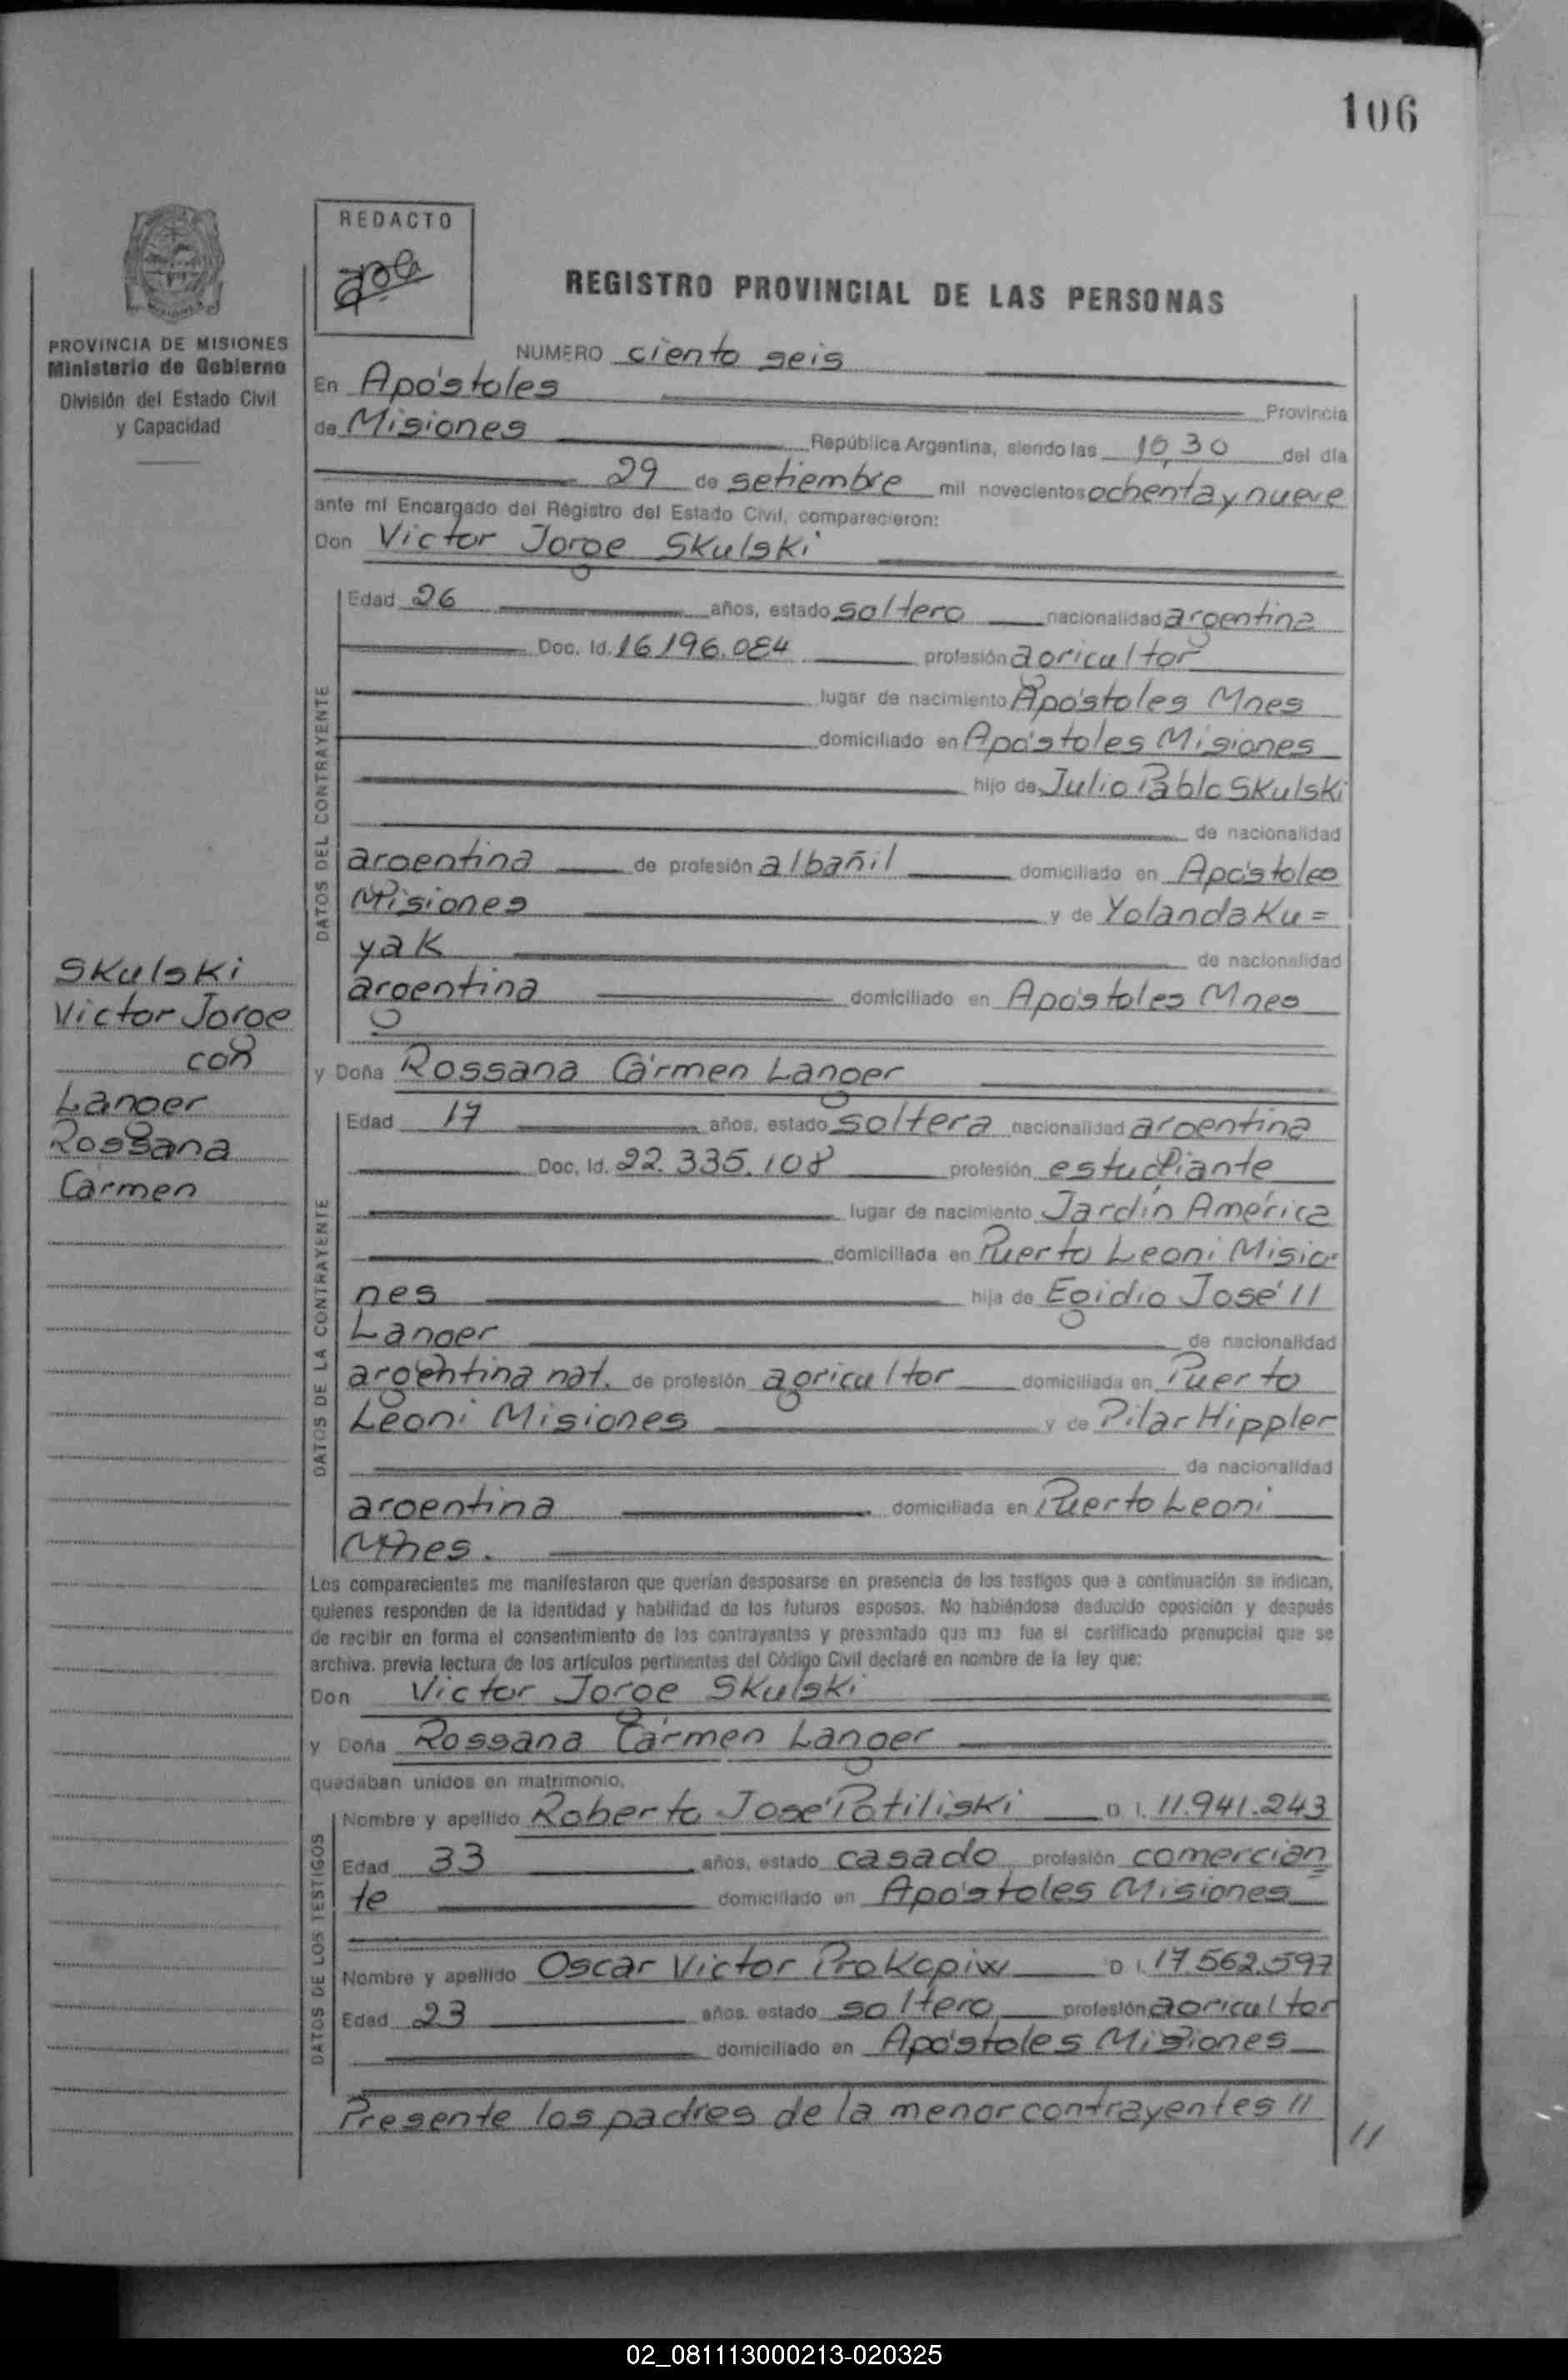 106
REDACTO
REGISTRO PROVINCIAL DE LAS PERSONAS
PROVINCIA DE MISIONES
Ministerio de Gobierno
División del Estado Civil
y Capacidad
NUMERO ciento seis
En Apóstoles Provincia
de Misiones República Argentina, siendo las 10,30 del día
29 de setiembre mil novecientos ochenta y nueve
ante mí Encargado del Registro del Estado Civil, comparecieron:
Don Victor Jorge Skulski
DATOS DEL CONTRAYENTE
Edad 26 años, estado soltero nacionalidad argentina
Doc. Id. 16.196.084 profesión agricultor
lugar de nacimiento Apóstoles Mnes
domiciliado en Apóstoles Misiones
hijo de Julio Pablo Skulski
de nacionalidad
argentina de profesión albañil domiciliado en Apóstoles
Misiones y de Yolanda Ku=
yak de nacionalidad
argentina domiciliado en Apóstoles Mnes
Skulski
Victor Jorge
con
Langer
Rossana
Carmen
y Doña Rossana Cármen Langer
DATOS DE LA CONTRAYENTE
Edad 17 años, estado soltera nacionalidad argentina
Doc. Id. 22.335.108 profesión estudiante
lugar de nacimiento Jardín América
domiciliada en Puerto Leoni Misio-
nes hija de Egidio José //
Langer de nacionalidad
argentina nat. de profesión agricultor domiciliada en Puerto
Leoni Misiones y de Pilar Hippler
de nacionalidad
argentina domiciliada en Puerto Leoni
Mnes.
Los comparecientes me manifestaron que querían desposarse en presencia de los testigos que a continuación se indican,
quienes responden de la identidad y habilidad de los futuros esposos. No habiéndose deducido oposición y después
de recibir en forma el consentimiento de los contrayentes y presentado que me fue el certificado prenupcial que se
archiva. previa lectura de los artículos pertinentes del Código Civil declaré en nombre de la ley que:
Don Victor Jorge Skulski
y Doña Rossana Cármen Langer
quedaban unidos en matrimonio.
DATOS DE LOS TESTIGOS
Nombre y apellido Roberto José Potiliski D. I. 11.941.243
Edad 33 años, estado casado profesión comercian=
te domiciliado en Apóstoles Misiones
Nombre y apellido Oscar Victor Prokopiw D. I. 17.562.597
Edad 23 años, estado soltero profesión agricultor
domiciliado en Apóstoles Misiones
Presente los padres de la menor contrayentes //
//
02_081113000213-020325